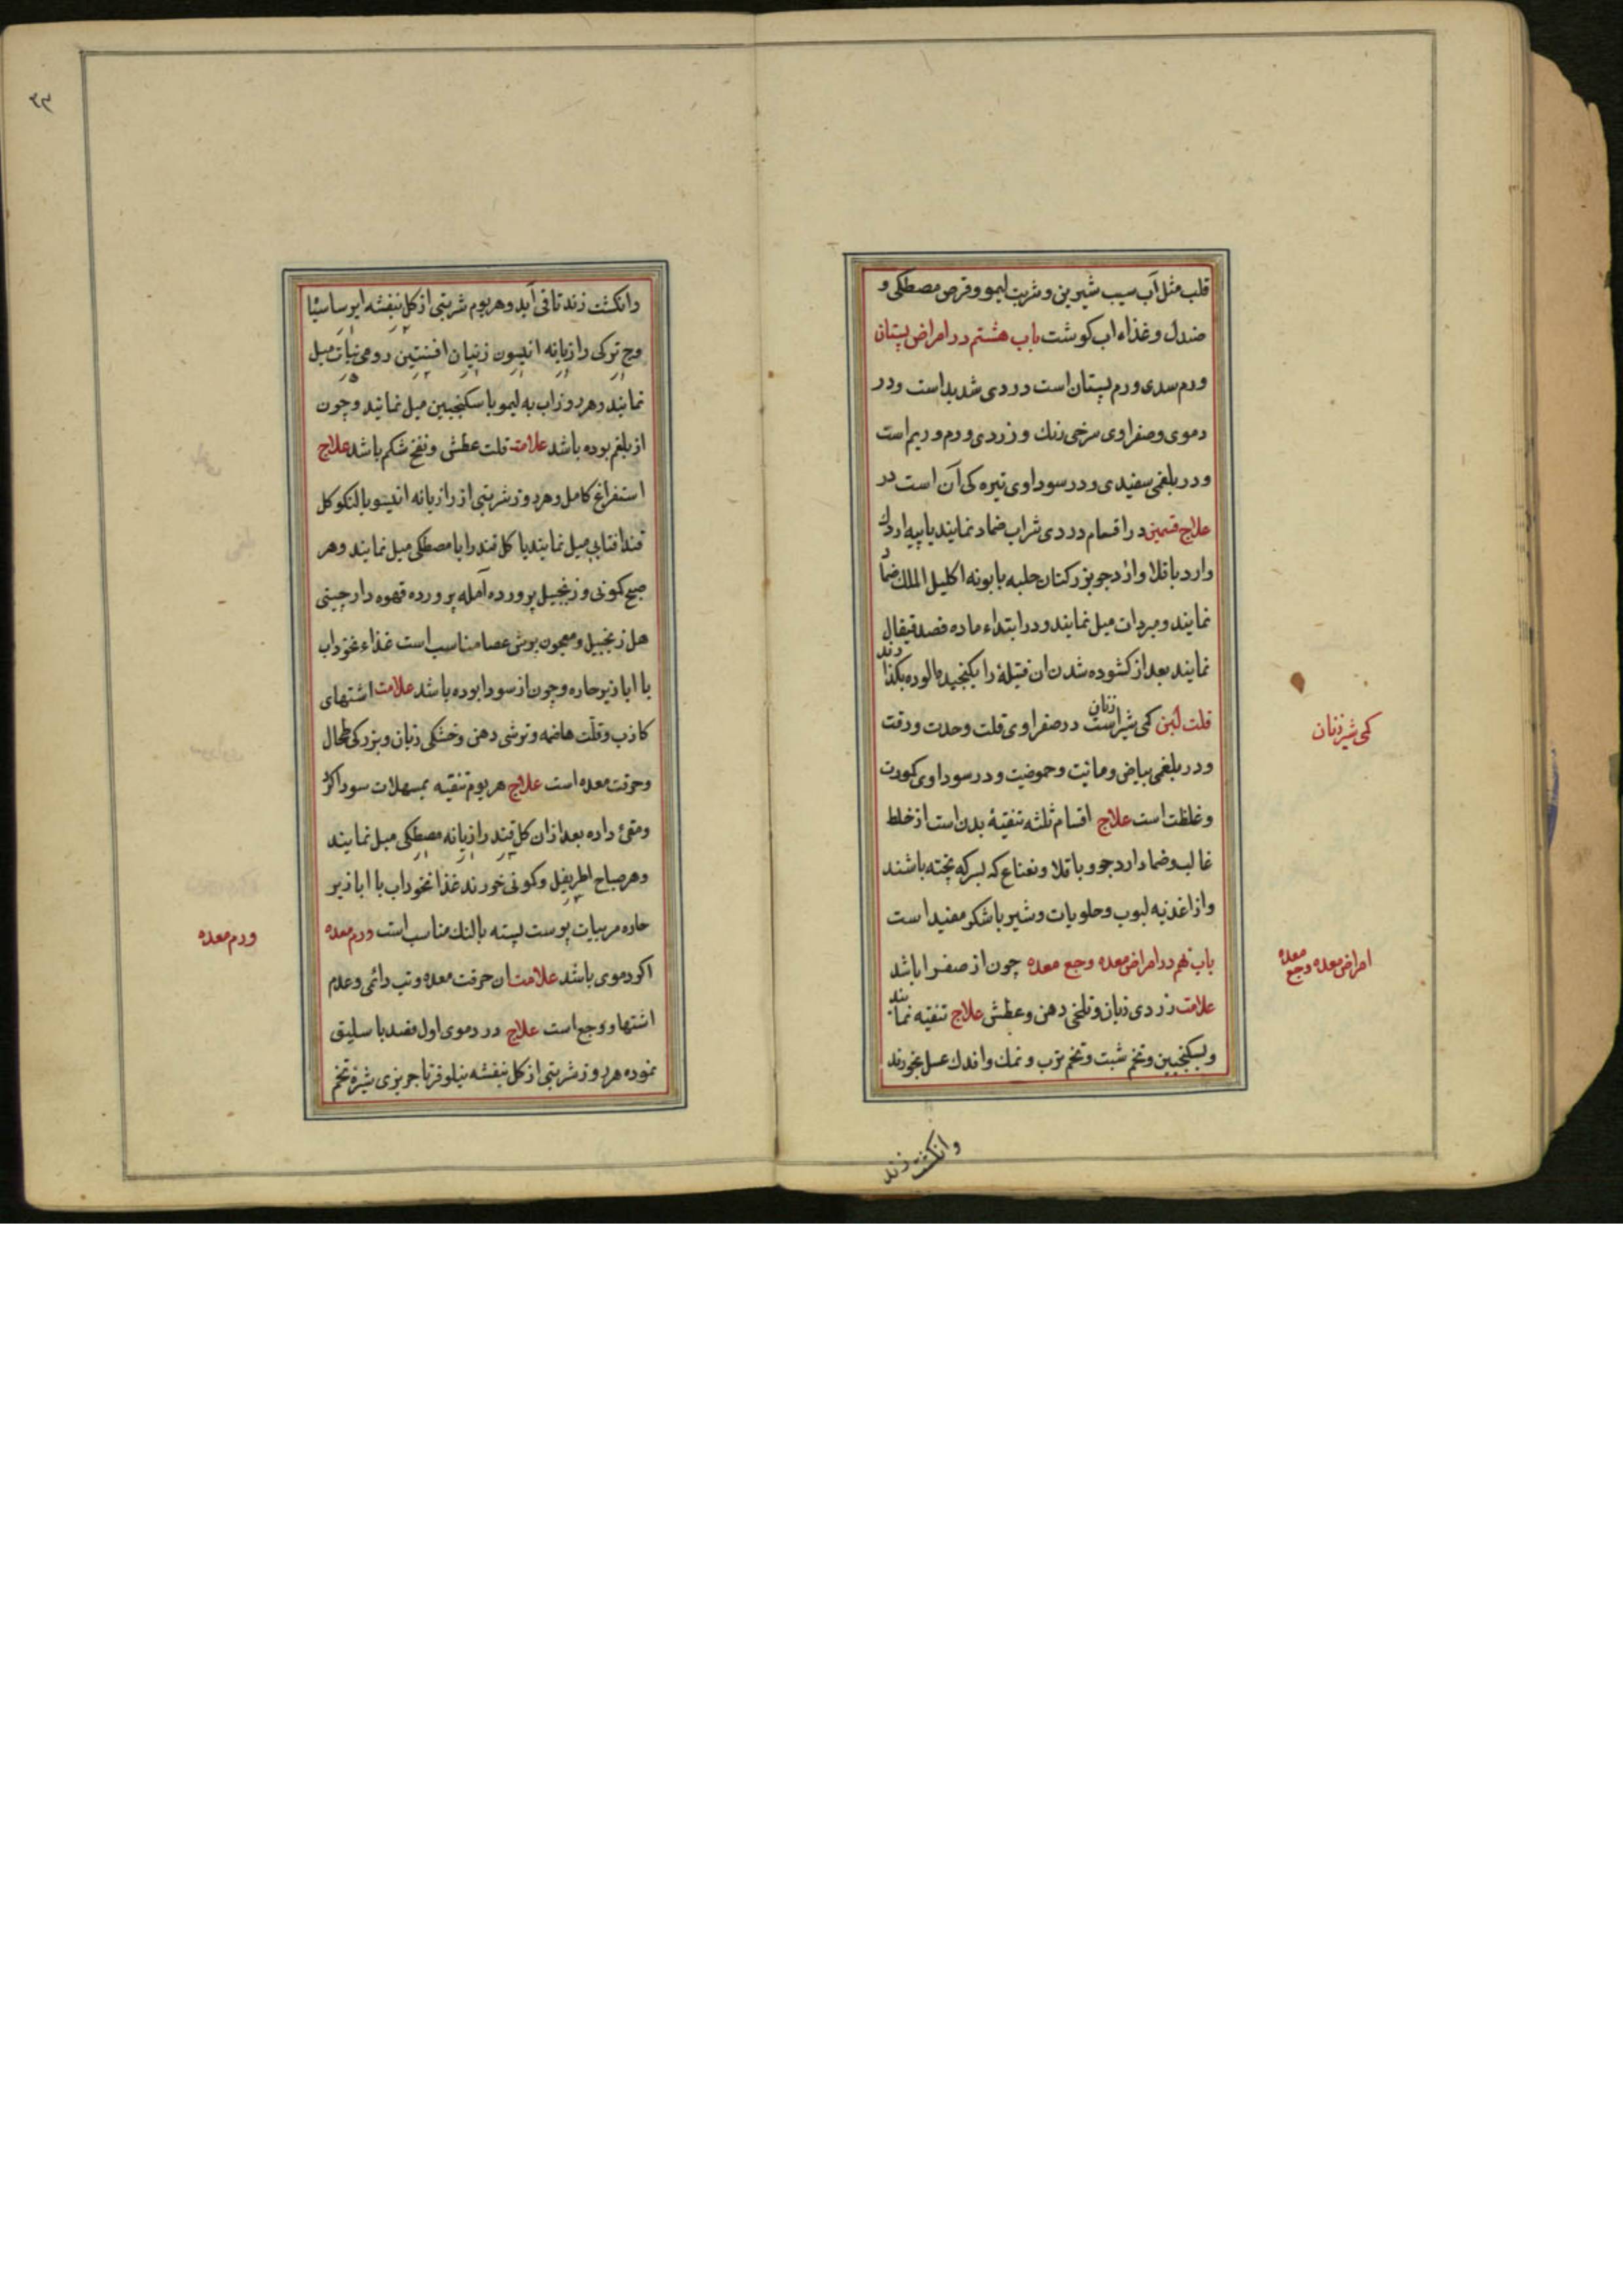 قلب مثل آب سیب شیرین و شربت لیمو و قرص مصطکی و
صندل و غذاء اب کوشت باب هشتم در امراض پستان
ورم سدی ورم پستان است در دی شدید است و در
دموی و صفراوی سرخی رنك و زردی و ورم و ریم است
و در بلغمی سفیدی و در سوداوی تیره کی آن است در
علاج قسمین در اقسام دردی شراب ضماد نمایند یا پیه اردك
وارد باقلا وارد جو بزرکتان حلبه بابونه اکلیل الملك ضماد
نمایند و مبردات میل نمایند و در ابتداء ماده فصد قیقال
نمایند بعد از کشوده شدن ان فتیلۀ را بکنجیده الوده بکذارند
قلت لبن کمی شیر زنان است در صفراوی قلت وحدت ورقت
و در بلغمی بیاض و مائیت و حموضیت و در سوداوی کبودت
وغلظت است علاج اقسام ثلثه تنقیۀ بدن است از خلط
غالب وضماد ارد جو و باقلا و نعناع که بسرکه پخته باشند
واز اغذیه لبوب و حلویات و شیر با شکر مفید است
باب نهم در امراض معده وجع معده چون از صفرا باشد
علامت زردی زبان و تلخی دهن و عطش علاج تنقیه نمایند
و بسکنجبین و تخم شبت و تخم ترب و نمك و اندك عسل بخورند
وانکشت زند
کمی شیر زنان
امراض معده وجع معده
۲۳
وانکشت زند تا قی آید و هر یوم شربتی از کل بنفشه ایرسا سیا
وج ترکی رازیانه انیسون زنیان افسنتین رومی نبات میل
نمایند و هر روز اب به لیمو با سکنجبین میل نمایند و چون
از بلغم بوده باشد علامت قلت عطش و نفخ شکم باشد علاج
استفراغ کامل و هر روز شربتی از رازیانه انیسو بالنکو کل
قند افتابی میل نمایند یا کل قند را با مصطکی میل نمایند و هر
صبح کمونی و زنجبیل پرورده آمله پرورده قهوه دارچینی
هل زنجبیل و معجون یوش عصا مناسب است غذاء نخوداب
با ابازیر حاره و چون از سودا بوده باشد علامت اشتهای
کاذب و قلّت هاضمه و ترشی دهن و خشکی زبان و بزرکی طحال
و حرقت معده است علاج هر یوم تنقیه بمسهلات سودا کرد
و مقئ داده بعد از ان کل قند رازیانه مصطکی میل نمایند
و هر صباح اطریفل و کمونی خورند غذا نخوداب با ابازیر
حاره مربیات پوست پسته بالنك مناسب است ورم معده
اکر دموی باشد علامت ان حرقت معده و تب دائمی و عدم
اشتها و وجع است علاج در دموی اول فصد باسلیق
نموده هر روز شربتی از کل بنفشه نیلوفر تاجریزی شیرۀ تخم
ورم معده